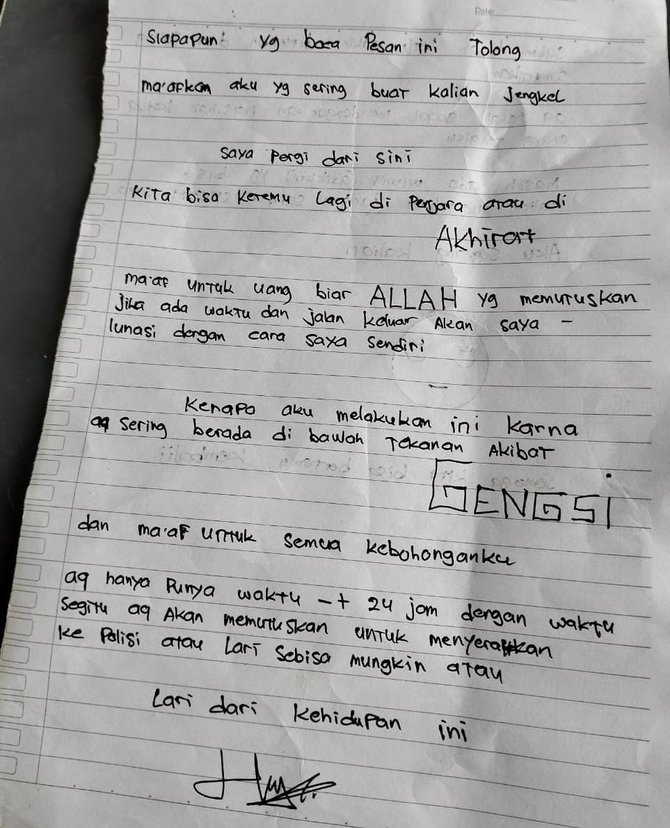 Date:
Siapapun yg baca Pesan ini Tolong
ma'afkan aku yg sering buat kalian Jengkel
saya pergi dari sini
kita bisa ketemu Lagi di Penjara atau di
Akhirat
ma'af untuk uang biar ALLAH yg memutuskan
Jika ada waktu dan jalan keluar Akan saya -
lunasi dengan cara saya sendiri
kenapa aku melakukan ini karna
aq sering berada di bawah Tekanan Akibat
GENGSI
dan ma'af untuk semua kebohonganku
aq hanya Punya waktu -+ 24 jam dengan waktu
segitu aq Akan memutuskan untuk menyerahkan
ke Polisi atau Lari Sebisa mungkin atau
Lari dari kehidupan ini